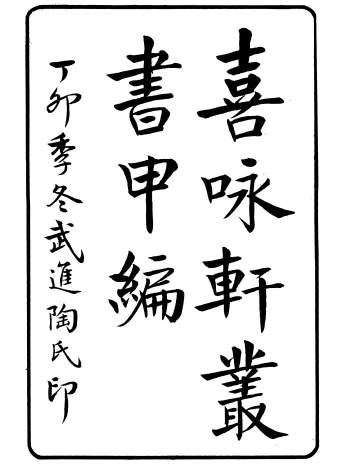 喜咏軒叢
書甲編
丁卯季冬武進陶氏印